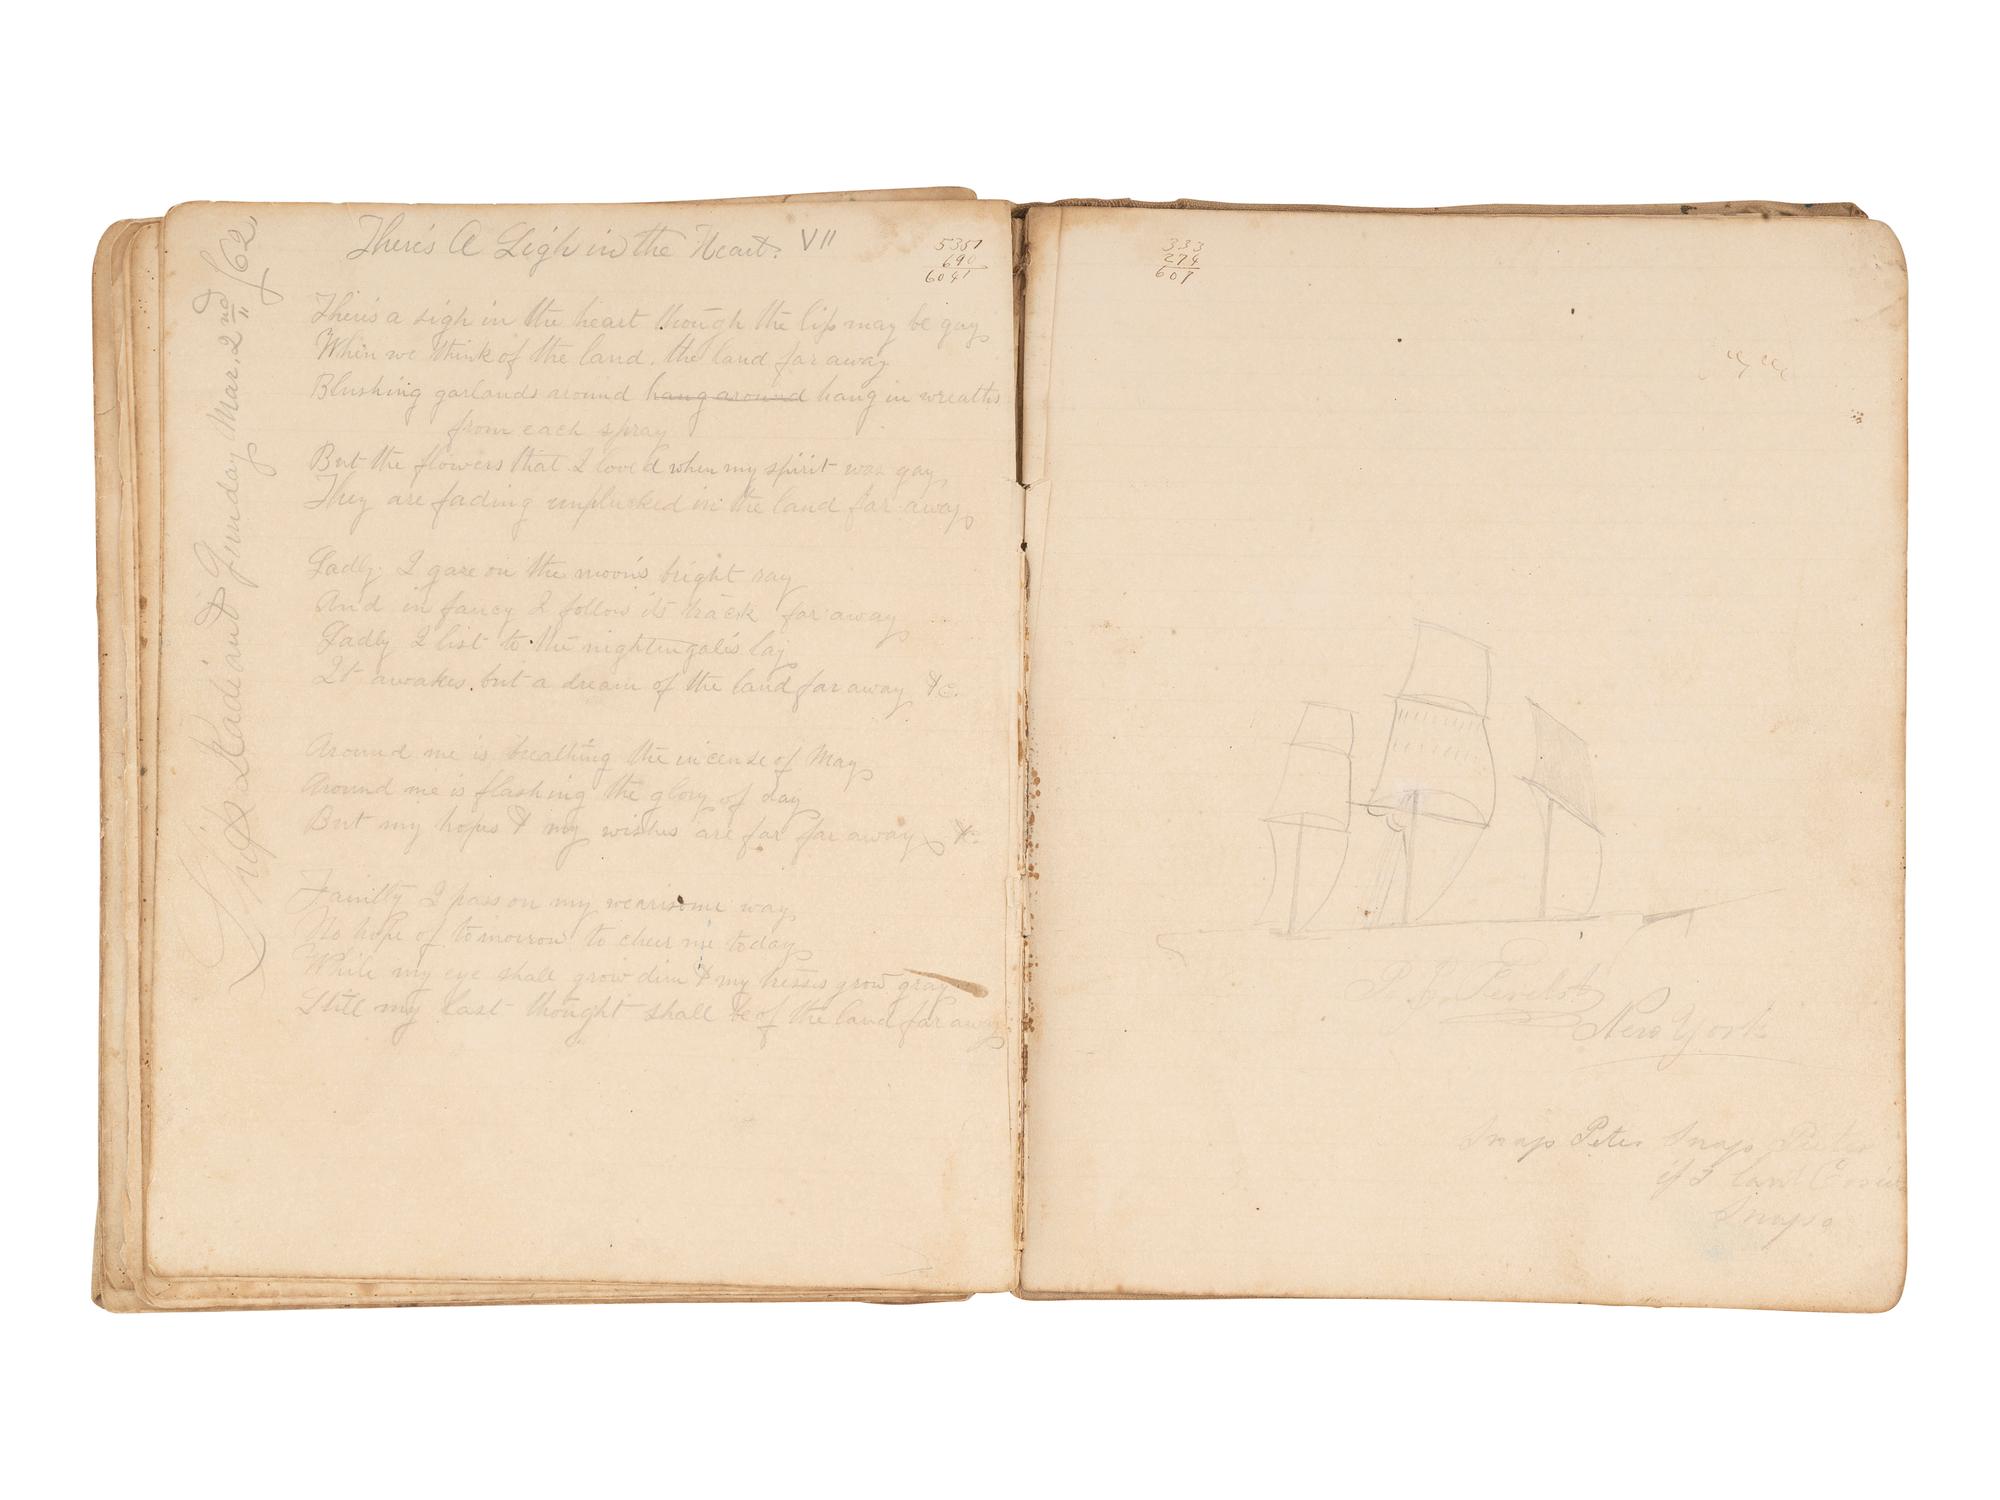 There's A Sigh in the Heart. VII
5351
690
6041
There's a sigh in the heart though the lip may be gay
When we think of the land. the land far away
Blushing garlands around hang around hang in wreaths
from each spray
But the flowers that I loved when my spirit was gay
They are fading unplucked in the land far away
Sadly I gaze on the moon's bright ray
And in fancy I follow its track far away
Sadly I list to the nightingale's lay
It awakes but a dream of the land far away &c.
Around me is breathing the incense of May
Around me is flashing the glory of day
But my hopes & my wishes are far far away &c
Faintly I pass on my wearisome way
No hope of tomorrow to cheer me today
While my eye shall grow dim & my tresses grow gray
Still my last thought shall be of the land far away
Ship Radiant Mar. 2nd /62
333
274
607
New York
Snap Peter Snap Peter
if I
Snaps